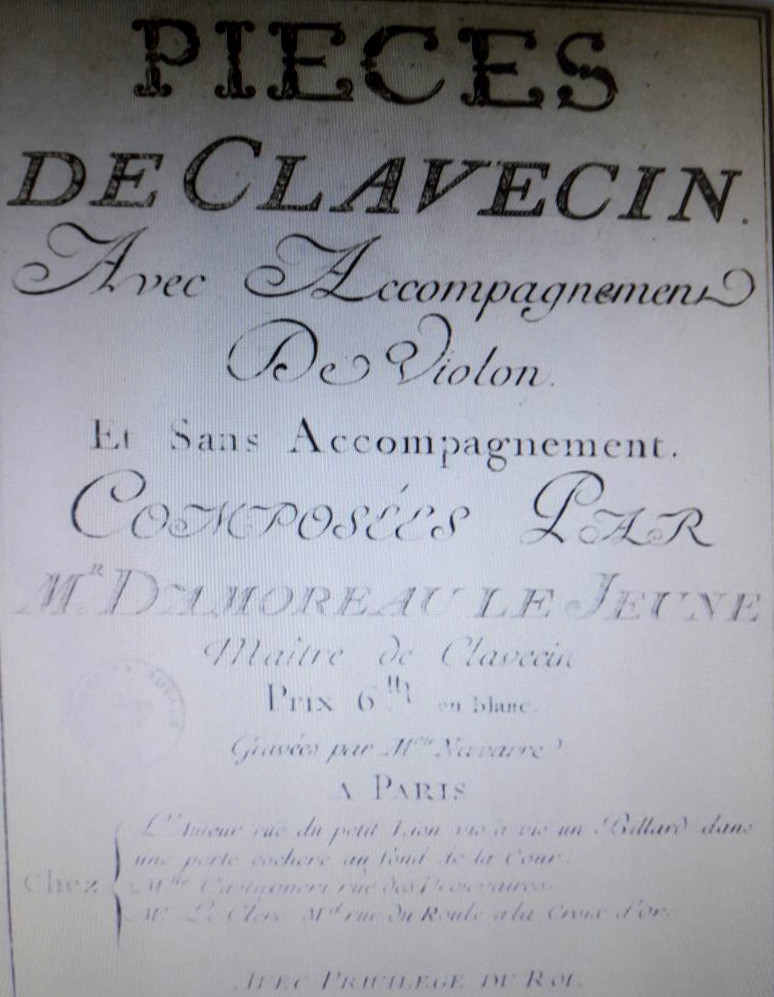 PIECES
DE CLAVECIN.
Avec Accompagnement
De Violon.
Et Sans Accompagnement.
COMPOSÉES PAR
M.R DAMOREAU LE JEUNE
Maître de Clavecin
Prix 6tt en blanc.
Gravées par Melle Navarre
A PARIS
L'Auteur rue du petit Lion vis a vis un Billard dans
une porte cochere au fond de la Cour.
Chez Melle Castagneri rue des Prouvaires.
Mr Le Clerc Md rue du Roule a la Croix d'or.
AVEC PRIVILEGE DU ROI.